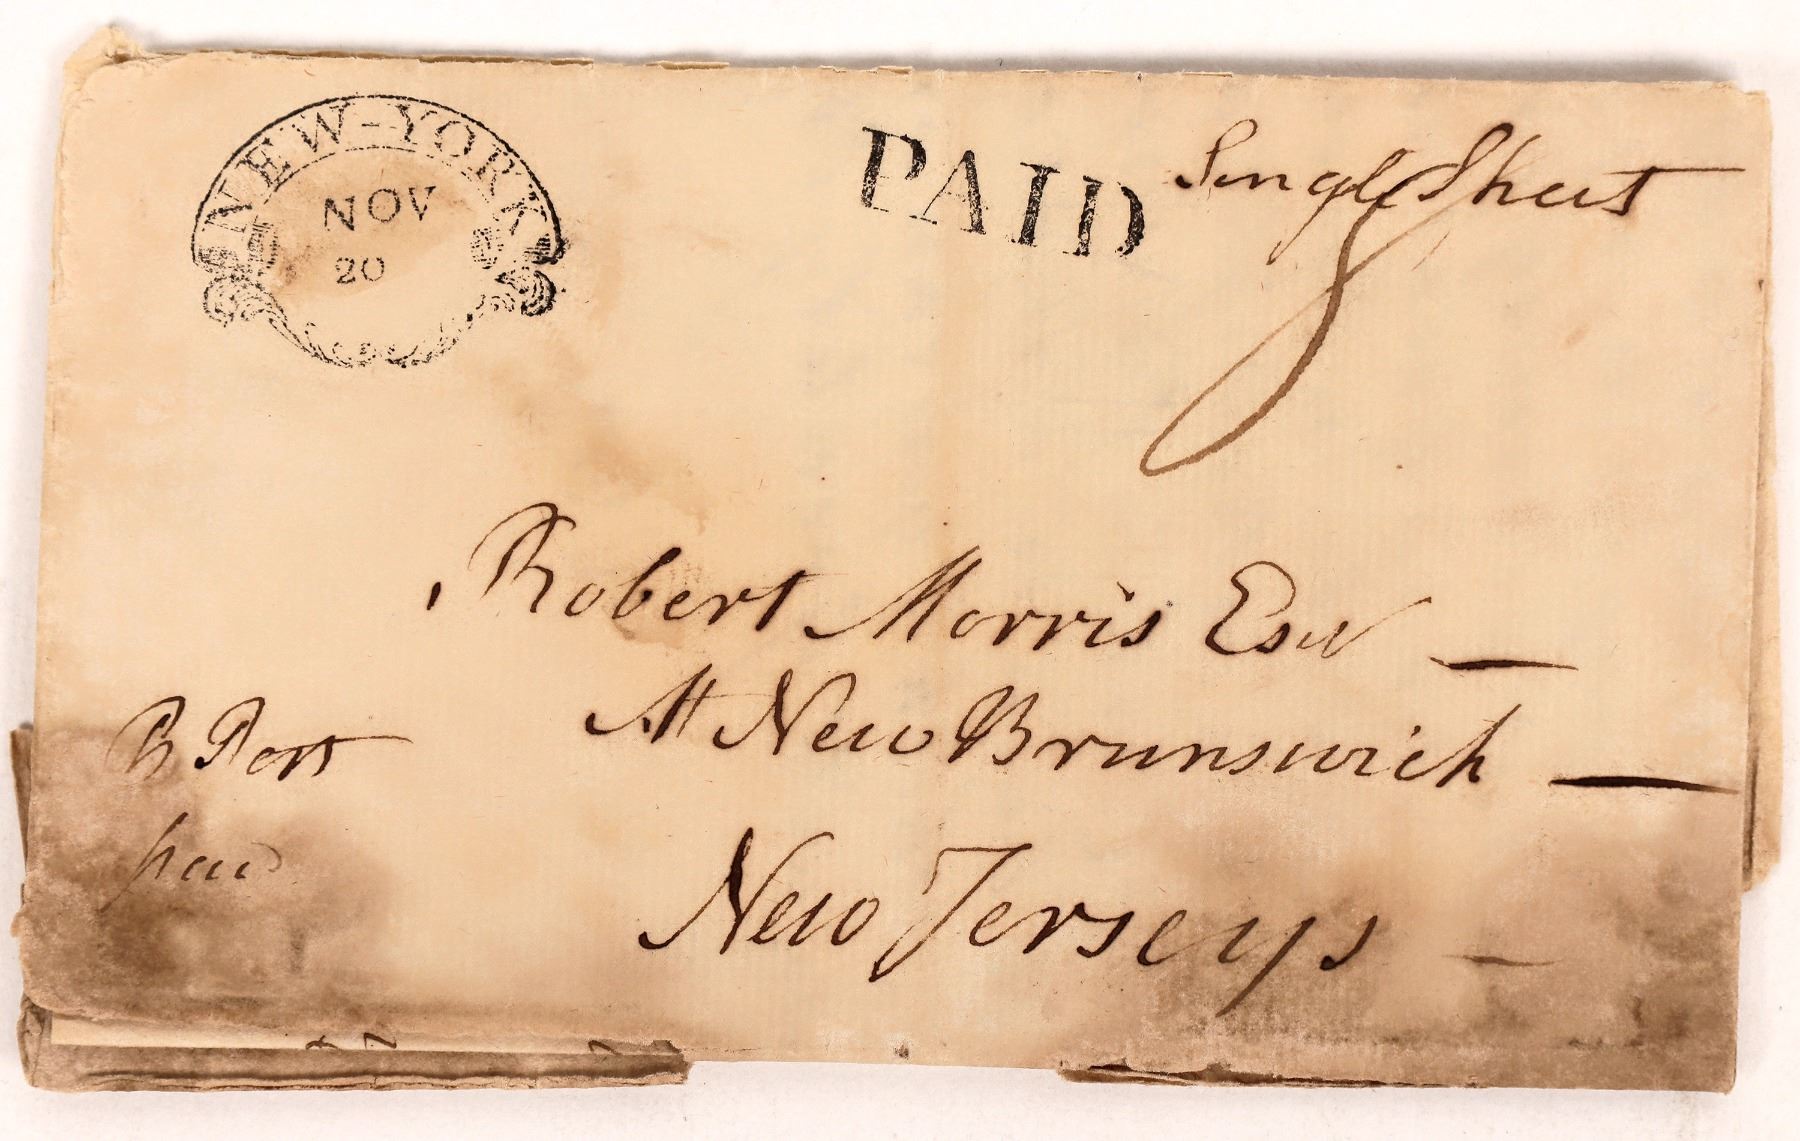 NEW-YORK
NOV
20
PAID
Single Sheet
8
Robert Morris Esqr
At New Brunswick
New Jerseys
Post
paid